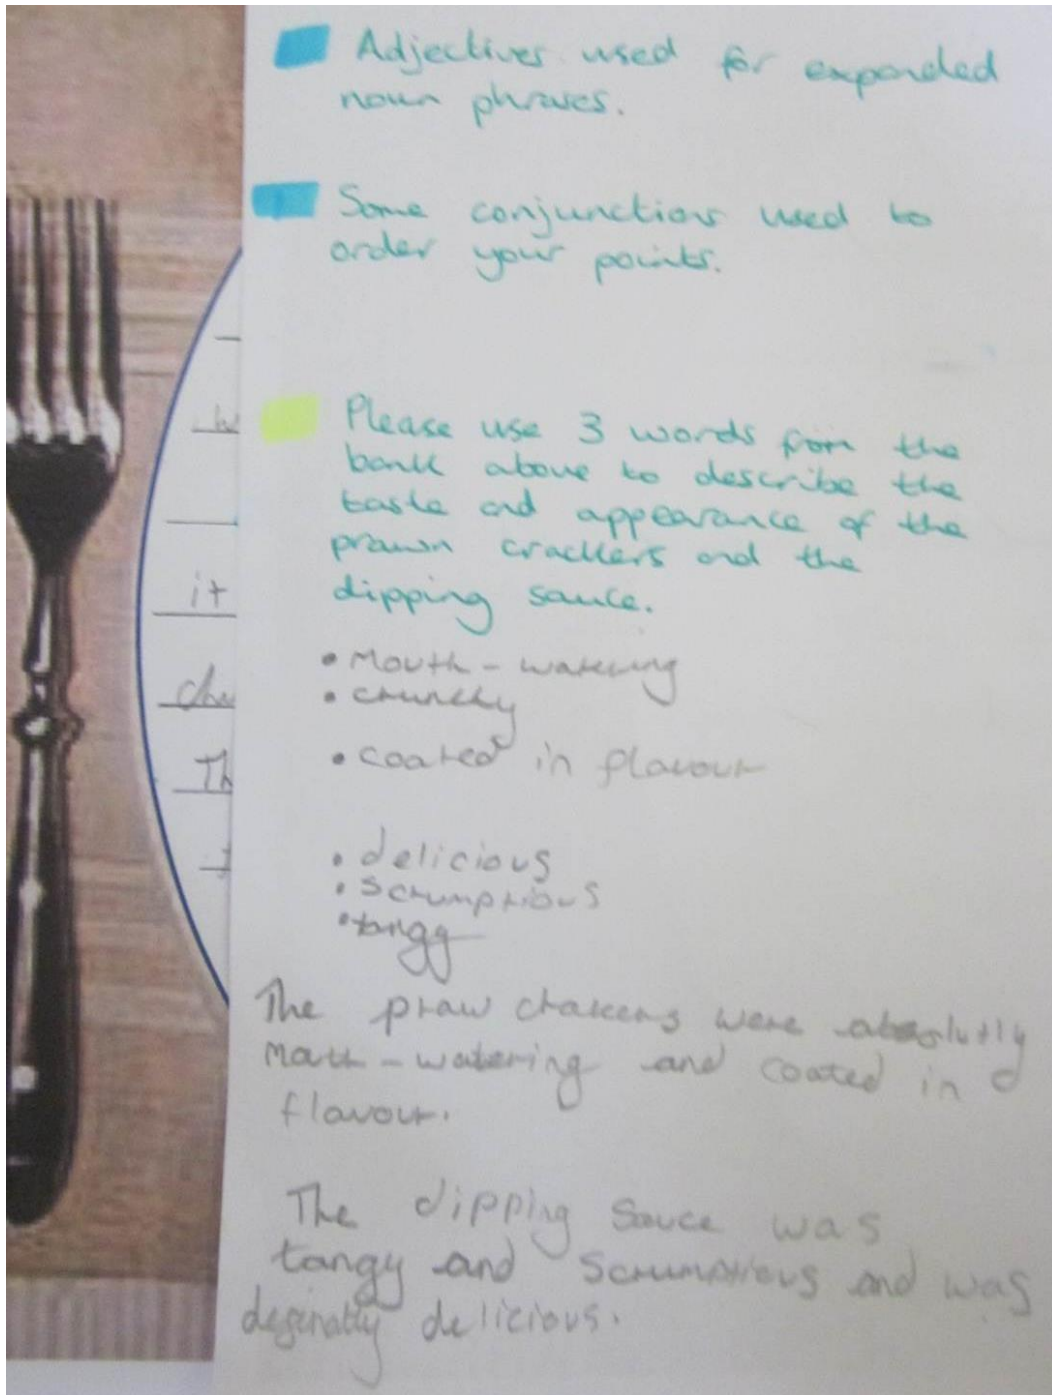 Adjectives used for expanded
noun phrases.
Some conjunctions used to
order your points.
Please use 3 words from the
bank above to describe the
taste and appearance of the
prawn crackers and the
dipping sauce.
it
Th
• Mouth-watering
• crunchy
• coated in flavour
• delicious
• scrumptious
• tangy
The praw crakers were
mouth-watering and coated in
flavour.
The dipping sauce was
tangy and scrumptious and was
delicious.